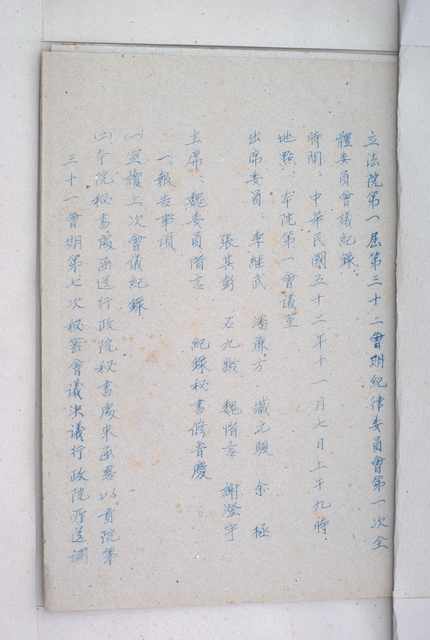 立法院第一屆第三十二會期紀律委員會第一次全
體委員會議紀錄
時間：中華民國五十二年十一月七日上午九時
地點：本院第一會議室
出席委員：李繼武　潘廉方　臧元駿　余　極
張其彭　石九齡　魏惜言　謝澄宇
主席：魏委員惜言　紀錄秘書修
一、報告事項
㈠宣讀上次會議紀錄
㈡本院秘書處函送行政院秘書處來函略以貴院第
三十一會期第七次秘密會議決議行政院所送調